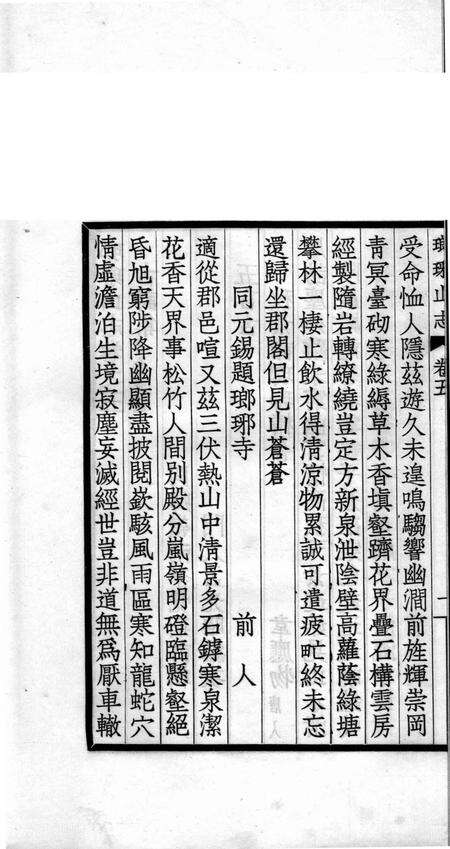 瑯琊山志 卷五 二
受命恤人隱茲遊久未遑鳴騶響幽澗前旌輝崇岡
青冥臺砌寒綠縟草木香塡壑躋花界疊石構雲房
經製隨岩轉繚繞豈定方新泉泄陰壁高蘿蔭綠塘
攀林一棲止飲水得淸涼物累誠可遣疲甿終未忘
還歸坐郡閣但見山蒼蒼
同元錫題瑯琊寺 前人
適從郡邑喧又茲三伏熱山中淸景多石罅寒泉潔
花香天界事松竹人間別殿分嵐嶺明磴臨懸壑絕
昏旭窮陟降幽顯盡披閱嶔駭風雨區寒知龍蛇穴
情虛澹泊生境寂塵妄滅經世豈非道無爲厭車轍